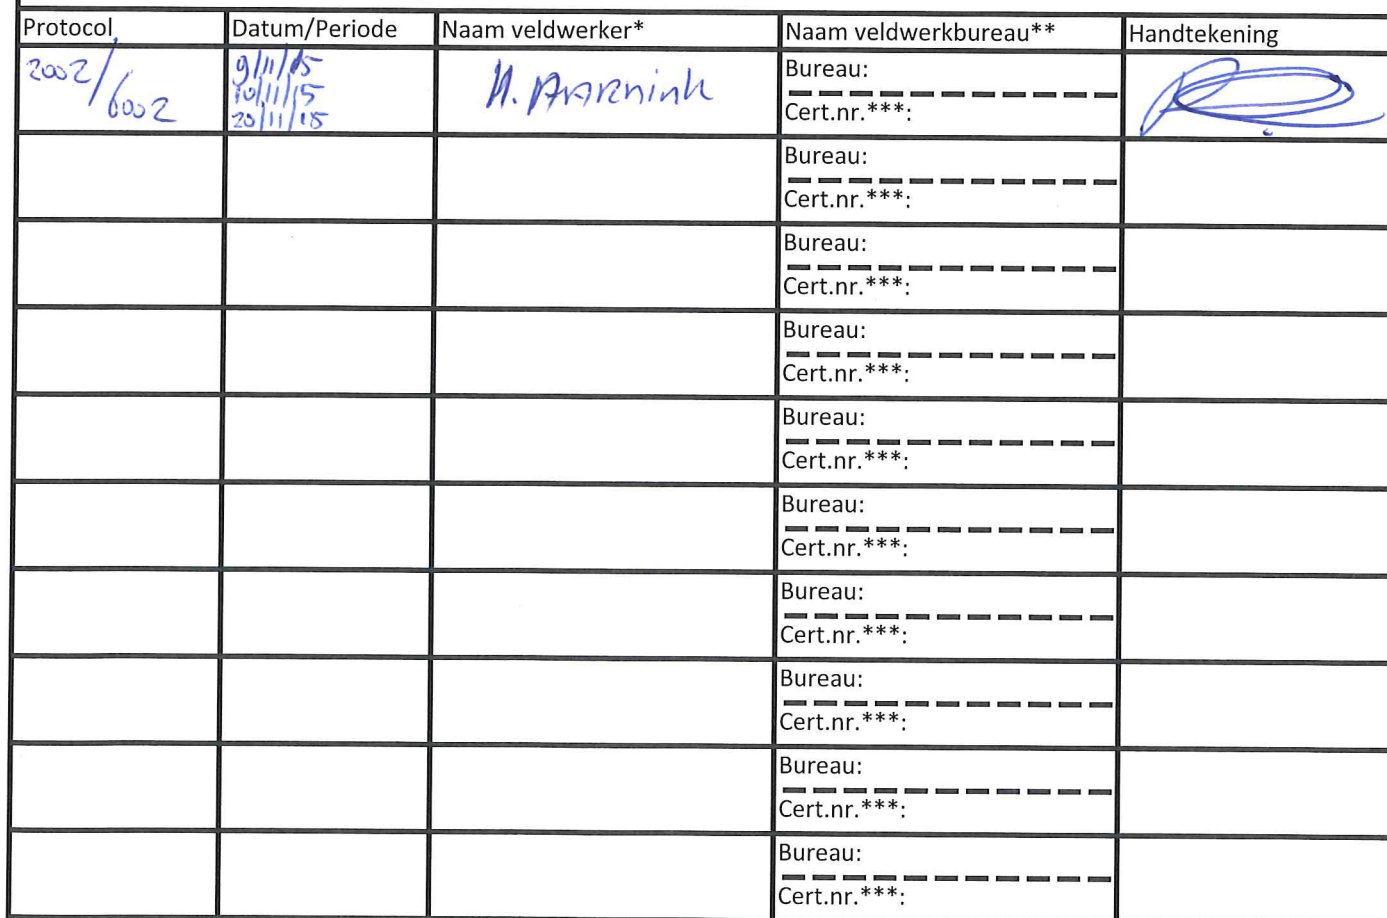 Protocol Datum/Periode Naam veldwerker* Naam veldwerkbureau** Handtekening
2002/6002 9/11/15 H. Aarnink Bureau:
10/11/15
20/11/15 Cert.nr.***:
Bureau:
Cert.nr.***:
Bureau:
Cert.nr.***:
Bureau:
Cert.nr.***:
Bureau:
Cert.nr.***:
Bureau:
Cert.nr.***:
Bureau:
Cert.nr.***:
Bureau:
Cert.nr.***:
Bureau:
Cert.nr.***:
Bureau:
Cert.nr.***: